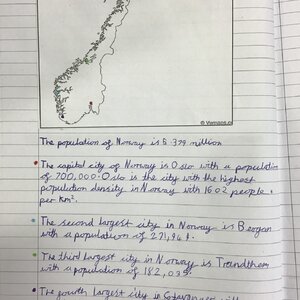 © Vemaps.co
The population of Norway is 5.379 million
The capital city of Norway is Oslo with a population
of 700,000. Oslo is the city with the highest
population density in Norway with 1602 people
per km².
The second largest city in Norway is Bergan
with a population of 271,949.
The third largest city in Norway is Trondtheim
with a population of 182,035
The fourth largest city is